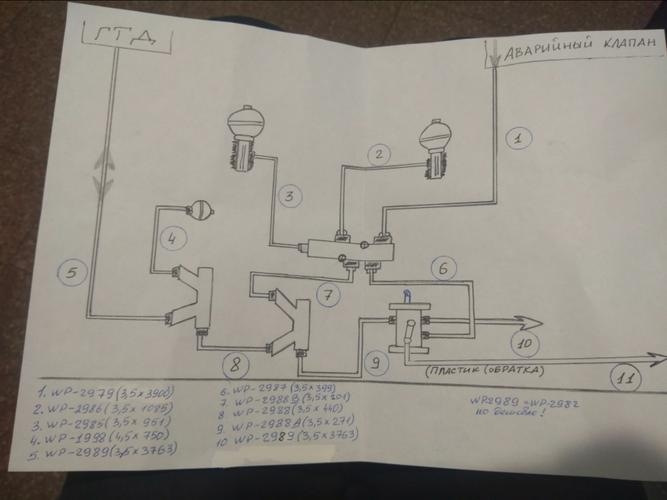 ГТД
АВАРИЙНЫЙ КЛАПАН
1
2
3
4
5
6
7
8
9
10
(ПЛАСТИК (ОБРАТКА)
11
1. WP-2979 (3,5×3900)
2. WP-2986 (3,5×1085)
3. WP-2985 (3,5×951)
4. WP-1998 (4,5×750)
5. WP-2989 (3,5×3763)
6. WP-2987 (3,5×399)
7 WP-2988B (3,5×201)
8 WP-2988 (3,5×440)
9 WP-2988A (3,5×271)
10 WP-2989 (3,5×3763)
WP2989 = WP-2982
но дешевле!